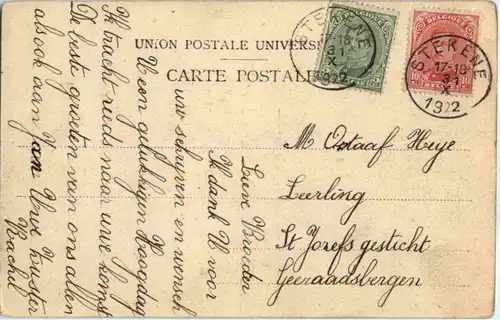 UNION POSTALE UNIVERS
CARTE POSTALE
BELGIQUE
BELGIQUE
STEKENE
31
X
1922
STEKENE
17-18
31
X
1922
10
10
M Ostaaf Heye
Leerling
St Jozefs gesticht
Geeraadsbergen
Lieve Broeder
Ik dank U voor
uw schryven en wensch
U een gelukkigen Hoogdag
Ik tracht reeds naar uwe komst
De beste groeten van ons allen
als ook aan Jan Uwe zuster
Rachel